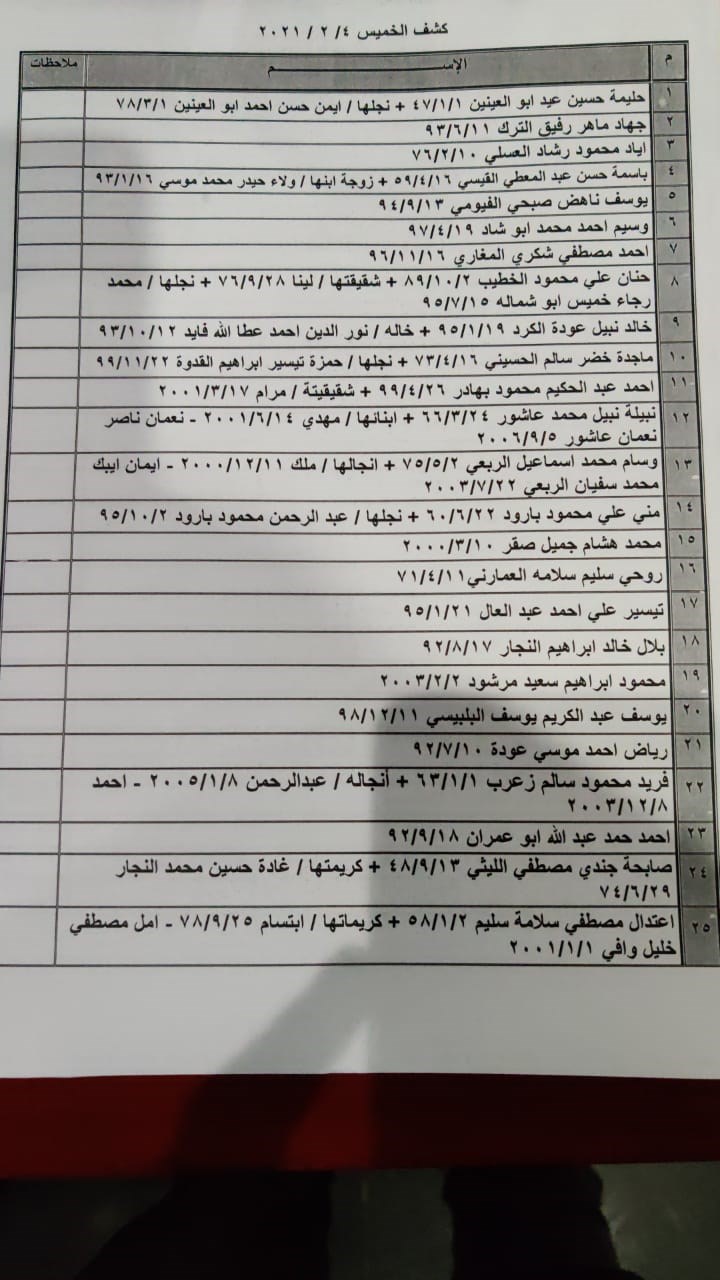 كشف الخميس ٤/ ٢ / ٢٠٢١
م الإســــــم ملاحظات
١ حليمة حسين عيد ابو العينين ٤٧/١/١ + نجلها / ايمن حسن احمد ابو العينين ٧٨/٣/١
٢ جهاد ماهر رفيق الترك ٩٣/٦/١١
٣ اياد محمود رشاد العسلي ٧٦/٢/١٠
٤ باسمة حسن عبد المعطي القيسي ٥٩/٤/١٦ + زوجة ابنها / ولاء حيدر محمد موسي ٩٣/١/١٦
٥ يوسف ناهض صبحي الفيومي ٩٤/٩/١٣
٦ وسيم احمد محمد ابو شاد ٩٧/٤/١٩
٧ احمد مصطفي شكري المغاري ٩٦/١١/١٦
٨ حنان علي محمود الخطيب ٨٩/١٠/٢ + شقيقتها / لينا ٧٦/٩/٢٨ + نجلها / محمد
رجاء خميس ابو شماله ٩٥/٧/١٥
٩ خالد نبيل عودة الكرد ٩٥/١/١٩ + خاله / نور الدين احمد عطا الله فايد ٩٣/١٠/١٢
١٠ ماجدة خضر سالم الحسيني ٧٣/٤/١٦ + نجلها / حمزة تيسير ابراهيم القدوة ٩٩/١١/٢٢
١١ احمد عبد الحكيم محمود بهادر ٩٩/٤/٢٦ + شقيقيتة / مرام ٢٠٠١/٣/١٧
١٢ نبيلة نبيل محمد عاشور ٦٦/٣/٢٤ + ابنائها / مهدي ٢٠٠١/٦/١٤ - نعمان ناصر
نعمان عاشور ٢٠٠٦/٩/٥
١٣ وسام محمد اسماعيل الربعي ٧٥/٥/٢ + انجالها / ملك ٢٠٠٠/١٢/١١ - ايمان ايبك
محمد سفيان الربعي ٢٠٠٣/٧/٢٢
١٤ مني علي محمود بارود ٦٠/٦/٢٢ + نجلها / عبد الرحمن محمود بارود ٩٥/١٠/٢
١٥ محمد هشام جميل صقر ٢٠٠٠/٣/١٠
١٦ روحي سليم سلامه العمارني ٧١/٤/١١
١٧ تيسير علي احمد عبد العال ٩٥/١/٢١
١٨ بلال خالد ابراهيم النجار ٩٢/٨/١٧
١٩ محمود ابراهيم سعيد مرشود ٢٠٠٣/٢/٢
٢٠ يوسف عبد الكريم يوسف البلبيسي ٩٨/١٢/١١
٢١ رياض احمد موسي عودة ٩٢/٧/١٠
٢٢ فريد محمود سالم زعرب ٦٣/١/١ + أنجاله / عبدالرحمن ٢٠٠٥/١/٨ - احمد
٢٠٠٣/١٢/٨
٢٣ احمد حمد عبد الله ابو عمران ٩٢/٩/١٨
٢٤ صابحة جندي مصطفي الليثي ٤٨/٩/١٣ + كريمتها / غادة حسين محمد النجار
٧٤/٦/٢٩
٢٥ اعتدال مصطفي سلامة سليم ٥٨/١/٢ + كريماتها / ابتسام ٧٨/٩/٢٥ - امل مصطفي
خليل وافي ٢٠٠١/١/١